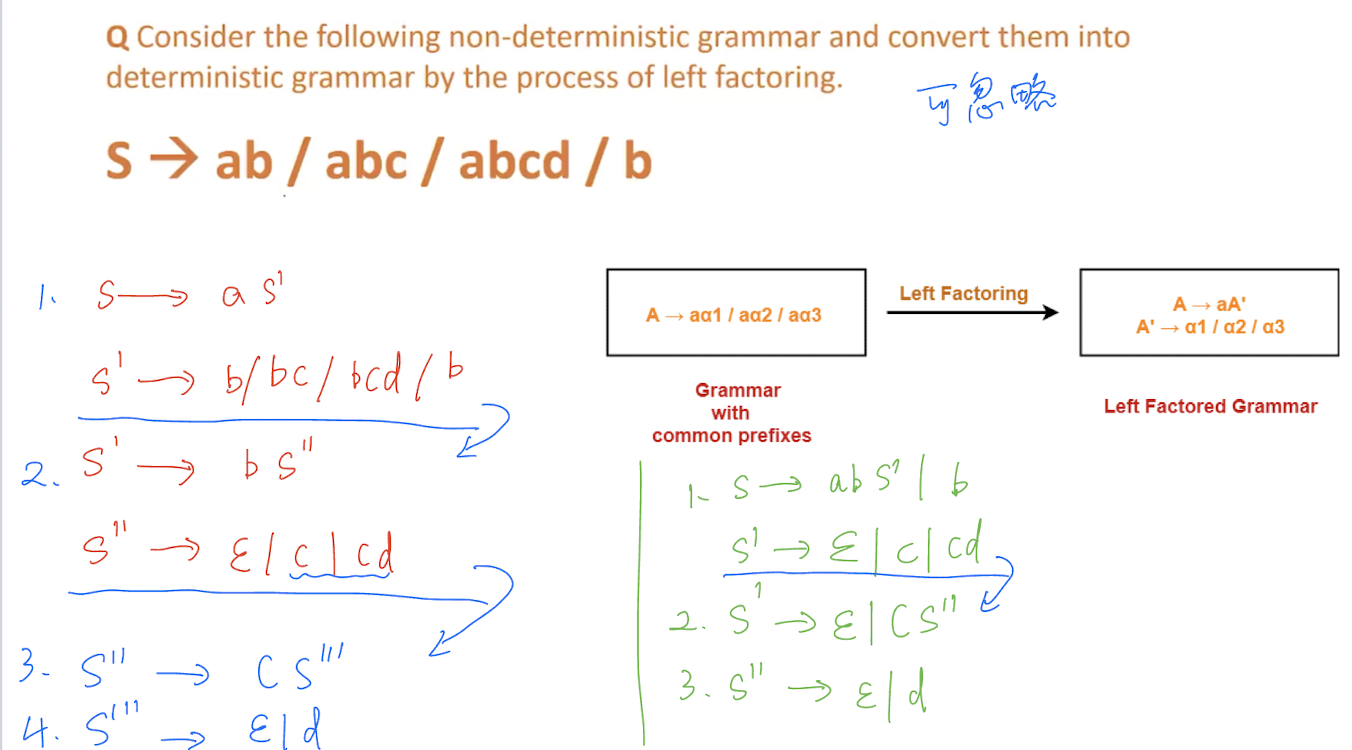 Q Consider the following non-deterministic grammar and convert them into
deterministic grammar by the process of left factoring.
可忽略
S → ab / abc / abcd / b
1. S → a S'
S' → b/bc/bcd/b
2. S' → b S''
S'' → ε/c|cd
3. S'' → C S'''
4. S''' → ε|d
A → aα1 / aα2 / aα3
Left Factoring
A → aA'
A' → α1 / α2 / α3
Grammar
with
common prefixes
Left Factored Grammar
1. S → ab S' | b
S' → ε|c|cd
2. S' → ε|CS''
3. S'' → ε|d